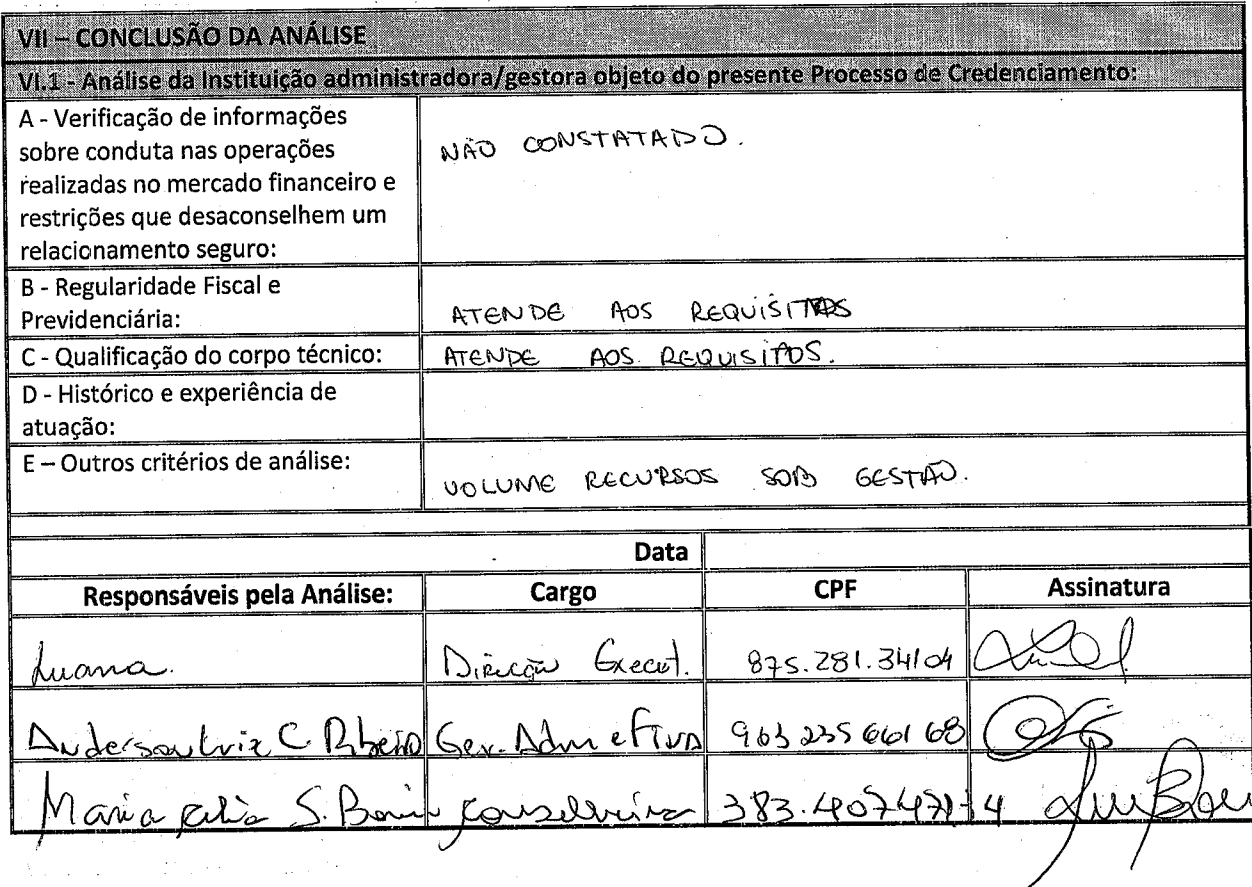 VII – CONCLUSÃO DA ANÁLISE
VI.1 - Análise da Instituição administradora/gestora objeto do presente Processo de Credenciamento:
A - Verificação de informações
sobre conduta nas operações
realizadas no mercado financeiro e
restrições que desaconselhem um
relacionamento seguro:
NÃO CONSTATADO.
B - Regularidade Fiscal e
Previdenciária:
ATENDE AOS REQUISITOS
C - Qualificação do corpo técnico:
ATENDE AOS REQUISITOS.
D - Histórico e experiência de
atuação:
E – Outros critérios de análise:
VOLUME RECURSOS SOB GESTÃO.
Data
Responsáveis pela Análise: Cargo CPF Assinatura
Luana. Direção Execut. 875.281.341 04
Anderson Luiz C. Ribeiro Ger. Adm e 963 235 661 68
Maria S. Conselheira 383.407471